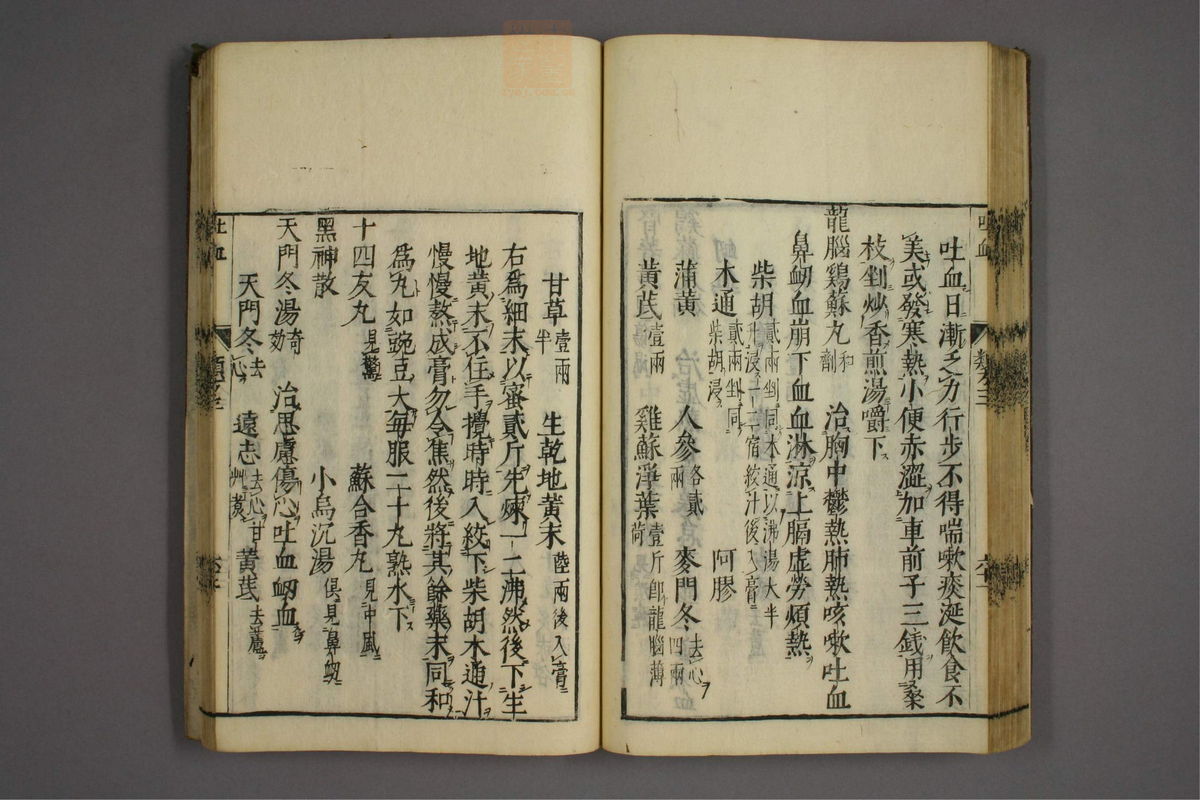 吐血日漸乏力行步不得喘嗽痰涎飲食不
美或發寒熱小便赤澀加車前子三錢用桑
枝剉炒香煎湯嚼下
龍腦鷄蘇丸和劑 治胸中鬱熱肺熱咳嗽吐血
鼻衂血崩下血血淋涼上膈虛勞煩熱
柴胡貳兩剉同木通以沸湯大半升浸一二宿絞汁後入膏
木通貳兩剉同柴胡浸 阿膠
蒲黃 人參各貳兩 麥門冬去心四兩
黃芪壹兩 雞蘇淨葉壹斤卽龍腦薄荷
甘草壹兩半 生乾地黃末陸兩後入膏
右爲細末以蜜貳斤先煉一二沸然後下生
地黃末不住手攪時時入絞下柴胡木通汁
慢慢熬成膏勿令焦然後將其餘藥末同和
爲丸如豌豆大每服二十丸熟水下
十四友丸見驚 蘇合香丸見中風
黑神散 小烏沉湯俱見鼻衂
天門冬湯奇効 治思慮傷心吐血衂血
天門冬去心 遠志去心甘艸煮 黃芪去蘆
吐血